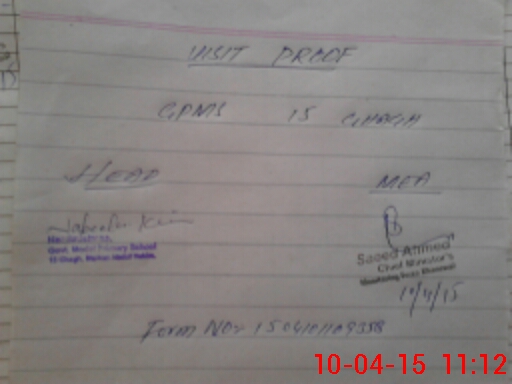 VISIT PROOF
GPMS 15 GHAGH
HEAD
MEA
Govt. Model Primary School
15 Ghagh,
Saeed Ahmed
Chief Minister's
10/4/15
Form NO:- 150410109358
10-04-15 11:12